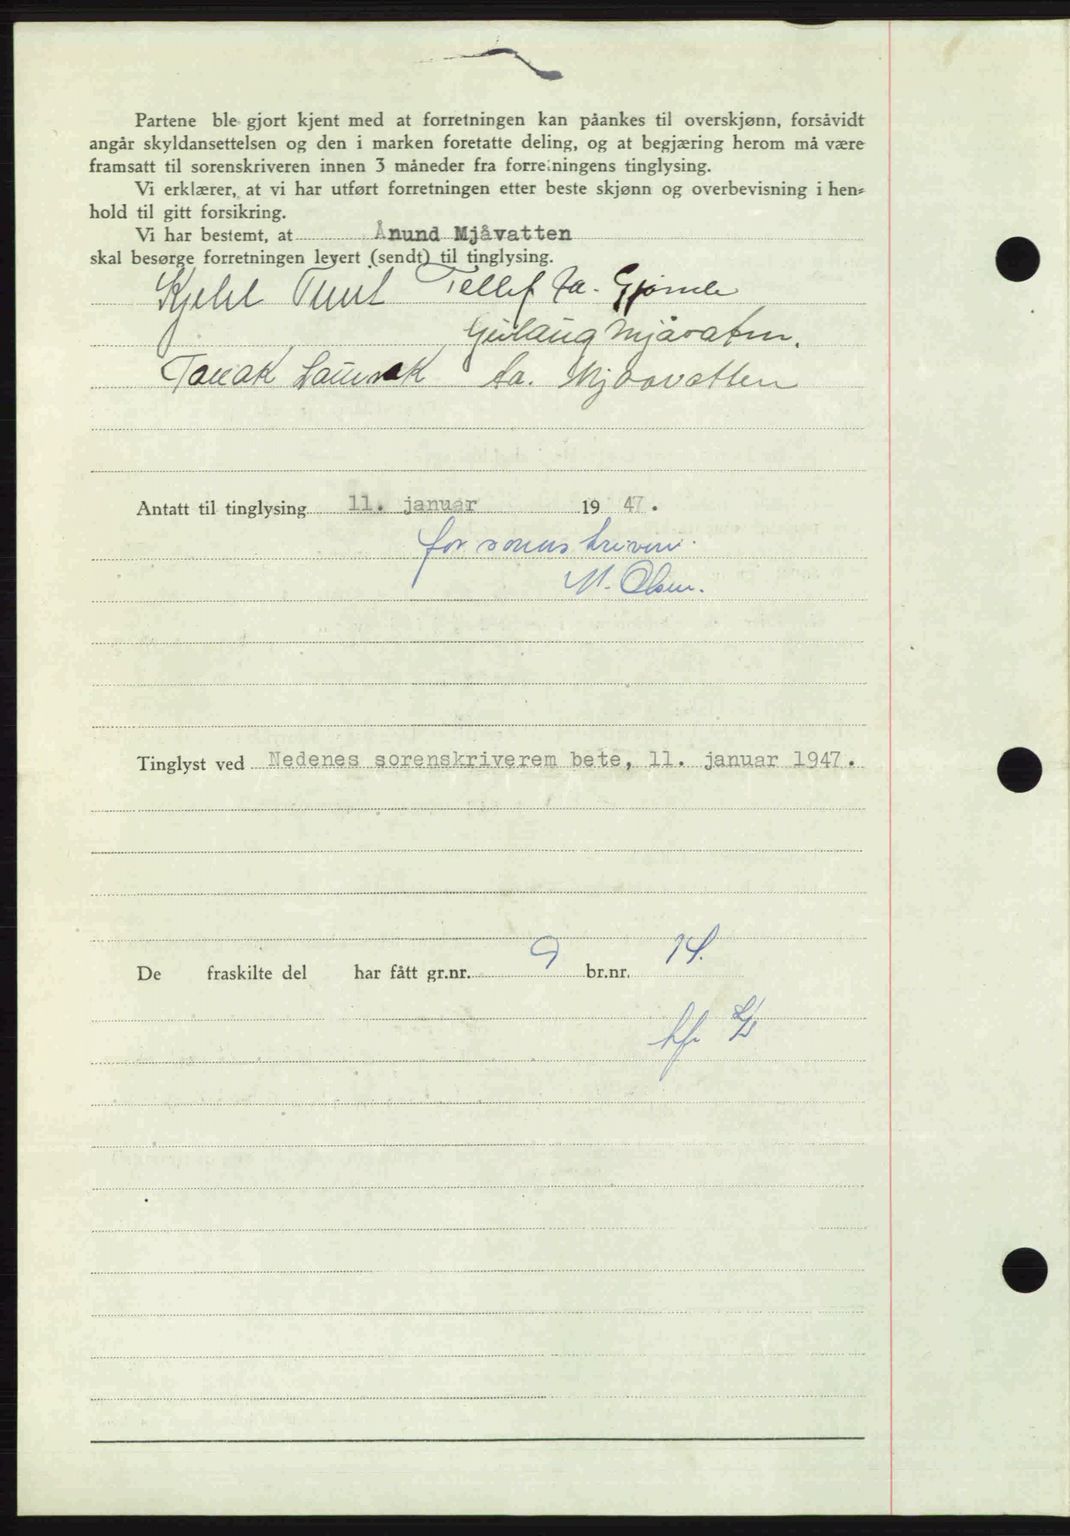 Partene ble gjort kjent med at forretningen kan påankes til overskjønn, forsåvidt
angår skyldansettelsen og den i marken foretatte deling, og at begjæring herom må være
framsatt til sorenskriveren innen 3 måneder fra forretningens tinglysing.
Vi erklærer, at vi har utført forretningen etter beste skjønn og overbevisning i hen=
hold til gitt forsikring.
Vi har bestemt, at Ånund Mjåvatten
skal besørge forretningen levert (sendt) til tinglysing.
Kjell Tellef Aa. Gjømle
Mjåvatten.
Aa. Mjaavatten
Antatt til tinglysing 11. januar 1947.
for sorenskriveren
M. Olsen.
Tinglyst ved Nedenes sorenskriverem bete, 11. januar 1947.
De fraskilte del har fått gr.nr. 9 br.nr. 14.